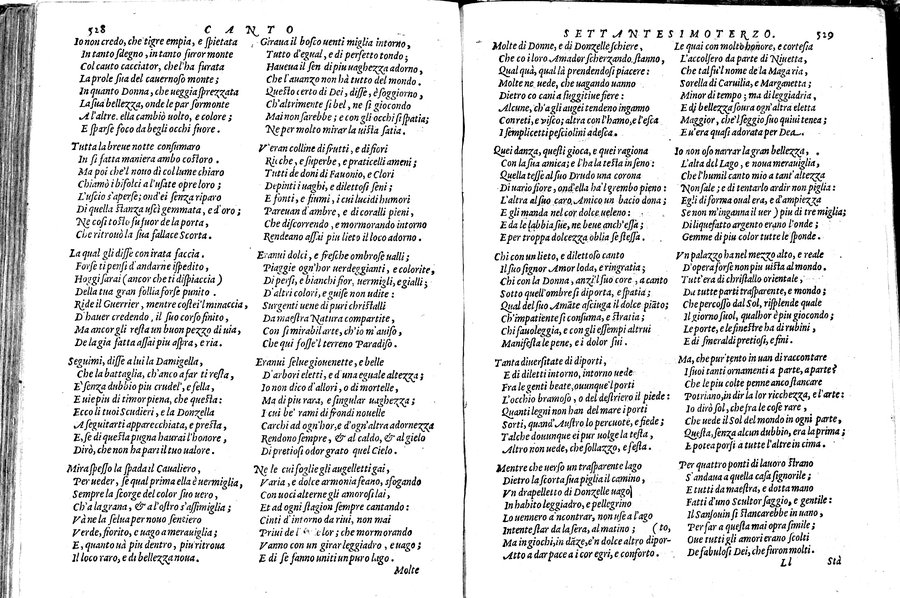 528 CANTO
Io non credo, che tigre empia, e spietata
In tanto sdegno, in tanto furor monte
Col cauto cacciator, che l'ha furata
La prole sua del cauernoso monte;
In quanto Donna, che ueggia sprezzata
La sua bellezza, onde le par formonte
A l'altre. ella cambiò uolto, e colore;
E sparse foco da begli occhi fuore.
Tutta la breue notte consumaro
In sì fatta maniera ambo costoro.
Ma poi che'l nouo dì col lume chiaro
Chiamò i bifolci a l'usate opre loro;
L'uscio s'aperse; ond'ei senza riparo
Di quella stanza uscì gemmata, e d'oro;
Ne così tosto su fuor de la porta,
Che ritrouò la sua fallace Scorta.
La qual gli disse con irata faccia.
Forse ti pensi d'andarne ispedito,
Hoggi sarai (ancor che ti dispiaccia)
Della tua gran follia forse punito.
Ride il Guerrier, mentre costei'l minaccia,
D'hauer credendo, il suo corso finito,
Ma ancor gli resta un buon pezzo di uia,
De la gia fatta assai piu aspra, e ria.
Seguimi, disse a lui la Damigella,
Che la battaglia, ch'anco a far ti resta,
E' senza dubbio piu crudel', e fella,
E uie piu di timor piena, che questa:
Ecco lì tuoi Scudieri, e la Donzella
A seguitarti apparecchiata, e presta,
E, se di questa pugna haurai l'honore,
Dirò, che non ha pari il tuo ualore.
Mira spesso la spada il Caualiero,
Per ueder, se qual prima ella è uermiglia,
Sempre la scorge del color suo uero,
Ch'a la grana, & a l'ostro s'assimiglia;
Và ne la selua per nouo sentiero
Verde, fiorito, e uago a merauiglia;
E, quanto uà piu dentro, piu ritroua
Il loco raro, e di bellezza noua.
Giraua il bosco uenti miglia intorno,
Tutto d'egual, e di perfetto tondo;
Haueua il sen di piu uaghezza adorno,
Che l'auanzo non hà tutto del mondo.
Questo certo di Dei, disse, è soggiorno,
Ch'altrimente sì bel, ne sì giocondo
Mai non sarebbe; e con gli occhi si spatia;
Ne per molto mirar la uista satia.
V'eran colline di frutti, e di fiori
Ricche, e superbe, e praticelli ameni;
Tutti de doni di Fauonio, e Clori
Depinti i uaghi, e dilettosi seni;
E fonti, e fiumi, i cui lucidi humori
Pareuan d'ambre, e di coralli pieni,
Che discorrendo, e mormorando intorno
Rendeano assai piu lieto il loco adorno.
Eranui dolci, e fresche ombrose ualli;
Piaggie ogn'hor uerdeggianti, e colorite,
Di persi, e bianchi fior, uermigli, e gialli;
D'altri colori, e guise non udite:
Surgenti uene di puri christalli
Da maestra Natura compartite,
Con sì mirabil arte, ch'io m'auiso,
Che qui fosse'l terreno Paradiso.
Eranui selue giouenette, e belle
D'arbori eletti, e d'una eguale altezza;
Io non dico d'allori, o di mortelle,
Ma di piu rara, e singular uaghezza;
I cui be' rami di frondi nouelle
Carchi ad ogn'hor, e d'ogn'altra adornezza
Rendono sempre, & al caldo, & al gielo
Di pretiosi odor grato quel Cielo.
Ne le cui foglie gli augelletti gai,
Varia, e dolce armonia feano, sfogando
Con uoci alterne gli amorosi lai,
Et ad ogni stagion sempre cantando:
Cinti d'intorno da riui, non mai
Priui de lor; che mormorando
Vanno con un girar leggiadro, e uago;
E di se fanno uniti un puro lago.
Molte
SETTANTESIMOTERZO. 529
Molte di Donne, e di Donzelle schiere,
Che co i loro Amador scherzando stanno,
Qual quà, qual là prendendosi piacere:
Molte ne uede, che uagando uanno
Dietro co cani a fuggitiue fiere:
Alcune, ch'a gli augei tendeno inganno
Con reti, e uisco; altra con l'hamo, e l'esca
I semplicetti pesciolini adesca.
Quei danza, questi gioca, e quei ragiona
Con la sua amica; e l'ha la testa in seno:
Quella tesse al suo Drudo una corona
Di uario fiore, ond'ella ha'l grembo pieno:
L'altra al suo caro Amico un bacio dona;
E gli manda nel cor dolce ueleno:
E da le labbia sue, ne beue anch'essa;
E per troppa dolcezza oblia se stessa.
Chi con un lieto, e dilettoso canto
Il suo signor Amor loda, e ringratia;
Chi con la Donna, anzi'l suo core, a canto
Sotto quell'ombre si diporta, e spatia;
Qual del suo Amate asciuga il dolce piāto;
Ch'impatiente si consuma, e stratia;
Chi fauoleggia, e con gli essempi altrui
Manifesta le pene, e i dolor sui.
Tanta diuersitate di diporti,
E di diletti intorno, intorno uede
Fra le genti beate, ouunque'l porti
L'occhio bramoso, o del destriero il piede:
Quanti legni non han del mare i porti
Sorti, quand'Austro lo percuote, e fiede;
Talche douunque ei pur uolge la testa,
Altro non uede, che sollazzo, e festa.
Mentre che uerso un trasparente lago
Dietro la scorta sua piglia il camino,
Vn drapelletto di Donzelle uago
In habito leggiadro, e pellegrino
Lo uennero a ncontrar, non use a l'ago
Intente star da la sera, al matino; (to,
Ma in giochi, in dāze, e'n dolce altro dipor-
Atto a dar pace a i cor egri, e conforto.
Le quai con molto honore, e cortesia
L'accolsero da parte di Niuetta,
Che tal fu'l nome de la Maga ria,
Sorella di Caruilia, e Marganetta;
Minor di tempo; ma di leggiadria,
E di bellezza soura ogn'altra eletta
Maggior, che'l seggio suo quiui tenea;
Eu'era quasi adorata per Dea.
Io non oso narrar la gran bellezza,
L'alta del Lago, e noua merauiglia,
Che l'humil canto mio a tant'altezza
Non sale; e di tentarlo ardir non piglia:
Egli di forma oual era, e d'ampiezza
Se non m'inganna il uer) piu di tre miglia;
Di liquefatto argento erano l'onde;
Gemme di piu color tutte le sponde.
Vn palazzo ha nel mezzo alto, e reale
D'opera forse non piu uista al mondo.
Tutt'era di christallo orientale,
Da tutte parti trasparente, e mondo;
Che percosso dal Sol, risplende quale
Il giorno suol, qualhor è piu giocondo;
Le porte, e le finestre ha di rubini,
E di smeraldi pretiosi, e fini.
Ma, che pur tento in uan di raccontare
I suoi tanti ornamenti a parte, a parte?
Che le piu colte penne anco stancare
Potriano, in dir la lor ricchezza, e l'arte:
Io dirò sol, che fra le cose rare,
Che uede il Sol del mondo in ogni parte,
Questa, senza alcun dubbio, era la prima;
E potea porsi a tutte l'altre in cima.
Per quattro ponti di lauoro strano
S'andaua a quella casa signorile;
E tutti da maestra, e dotta mano
Fatti d'uno Scultor saggio, e gentile:
Il Sansouin si stancarebbe in uano,
Per far a questa mai opra simile;
Oue tutti gli amori erano scolti
De fabulosi Dei, che furon molti.
Ll Stà